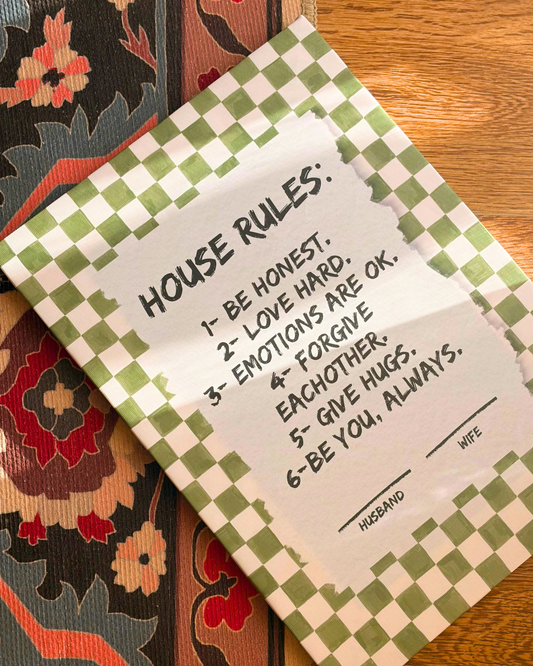 HOUSE RULES:
1- BE HONEST.
2- LOVE HARD.
3- EMOTIONS ARE OK.
4- FORGIVE
EACHOTHER.
5- GIVE HUGS.
6-BE YOU, ALWAYS.
HUSBAND
WIFE